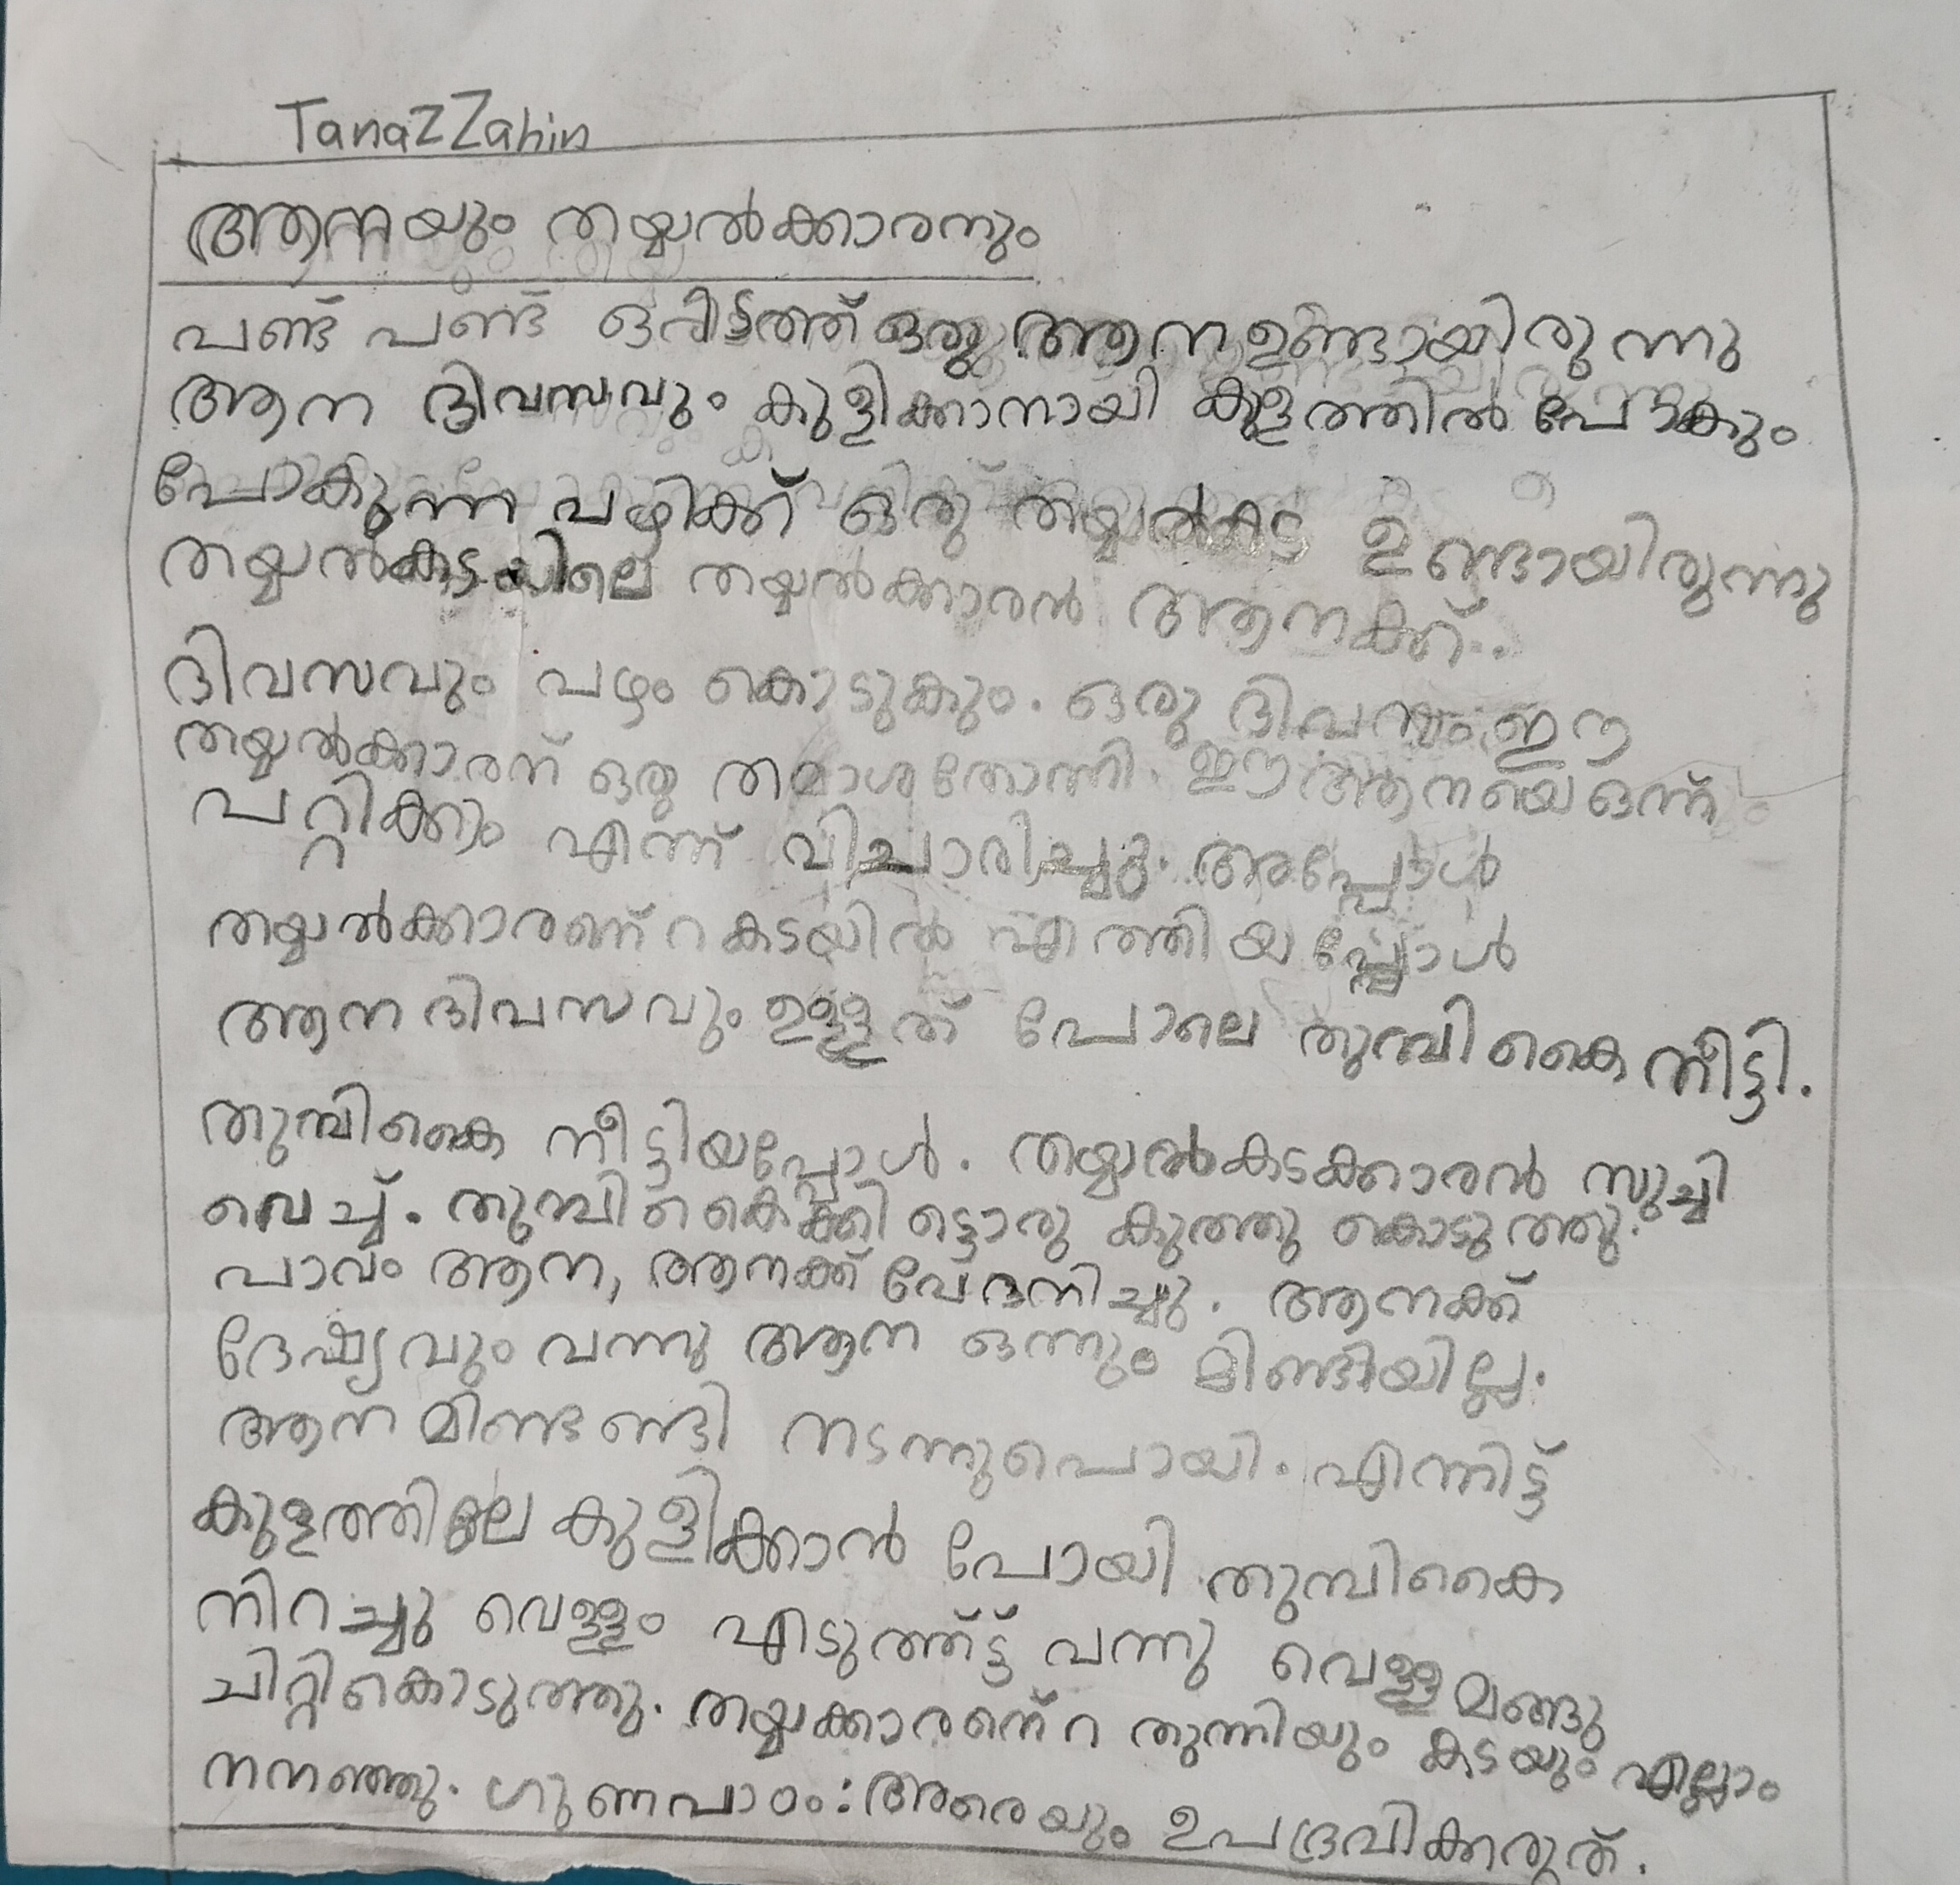 TanaZ Zahin
ആനയും തയ്യൽക്കാരനും
പണ്ട് പണ്ട് ഒരിടത്ത് ഒരു ആന ഉണ്ടായിരുന്നു
ആന ദിവസവും കുളിക്കാനായി കുളത്തിൽ പോകും
പോകുന്ന പഴിക്ക് ഒരു തയ്യൽകട ഉണ്ടായിരുന്നു
തയ്യൽകടയിലെ തയ്യൽക്കാരൻ ആനക്ക്..
ദിവസവും പഴം കൊടുകും. ഒരു ദിവസം ഈ
തയ്യൽക്കാരന് ഒരു തമാശ തോന്നി. ഈ ആനയെ ഒന്ന്
പറ്റിക്കാം എന്ന് വിചാരിച്ചു. അപ്പോൾ
തയ്യൽക്കാരണ്റ കടയിൽ എത്തിയപ്പോൾ
ആന ദിവസവും ഉള്ളത് പോലെ തുമ്പികൈ നീട്ടി.
തുമ്പികൈ നീട്ടിയപ്പോൾ. തയ്യൽകടക്കാരൻ സുച്ചി
വെച്ച്. തുമ്പികൈക്കിട്ടൊരു കുത്തു കൊടുത്തു.
പാവം ആന, ആനക്ക് വേദനിച്ചു. ആനക്ക്
ദേഷ്യവും വന്നു ആന ഒന്നും മിണ്ടിയില്ല.
ആന മിണ്ടണ്ടി നടന്നുപൊയി. എന്നിട്ട്
കുളത്തിലേ കുളിക്കാൻ പോയി തുമ്പികൈ
നിറച്ചു വെള്ളം എടുത്ത്ട്ട് പന്നു വെള്ളമങ്ങു
ചിറ്റികൊടുത്തു. തയ്യക്കാരന്റെ തുന്നിയും കടയും എല്ലാം
നനഞ്ഞു. ഗുണപാഠം: ആരെയും ഉപദ്രവിക്കരുത്.